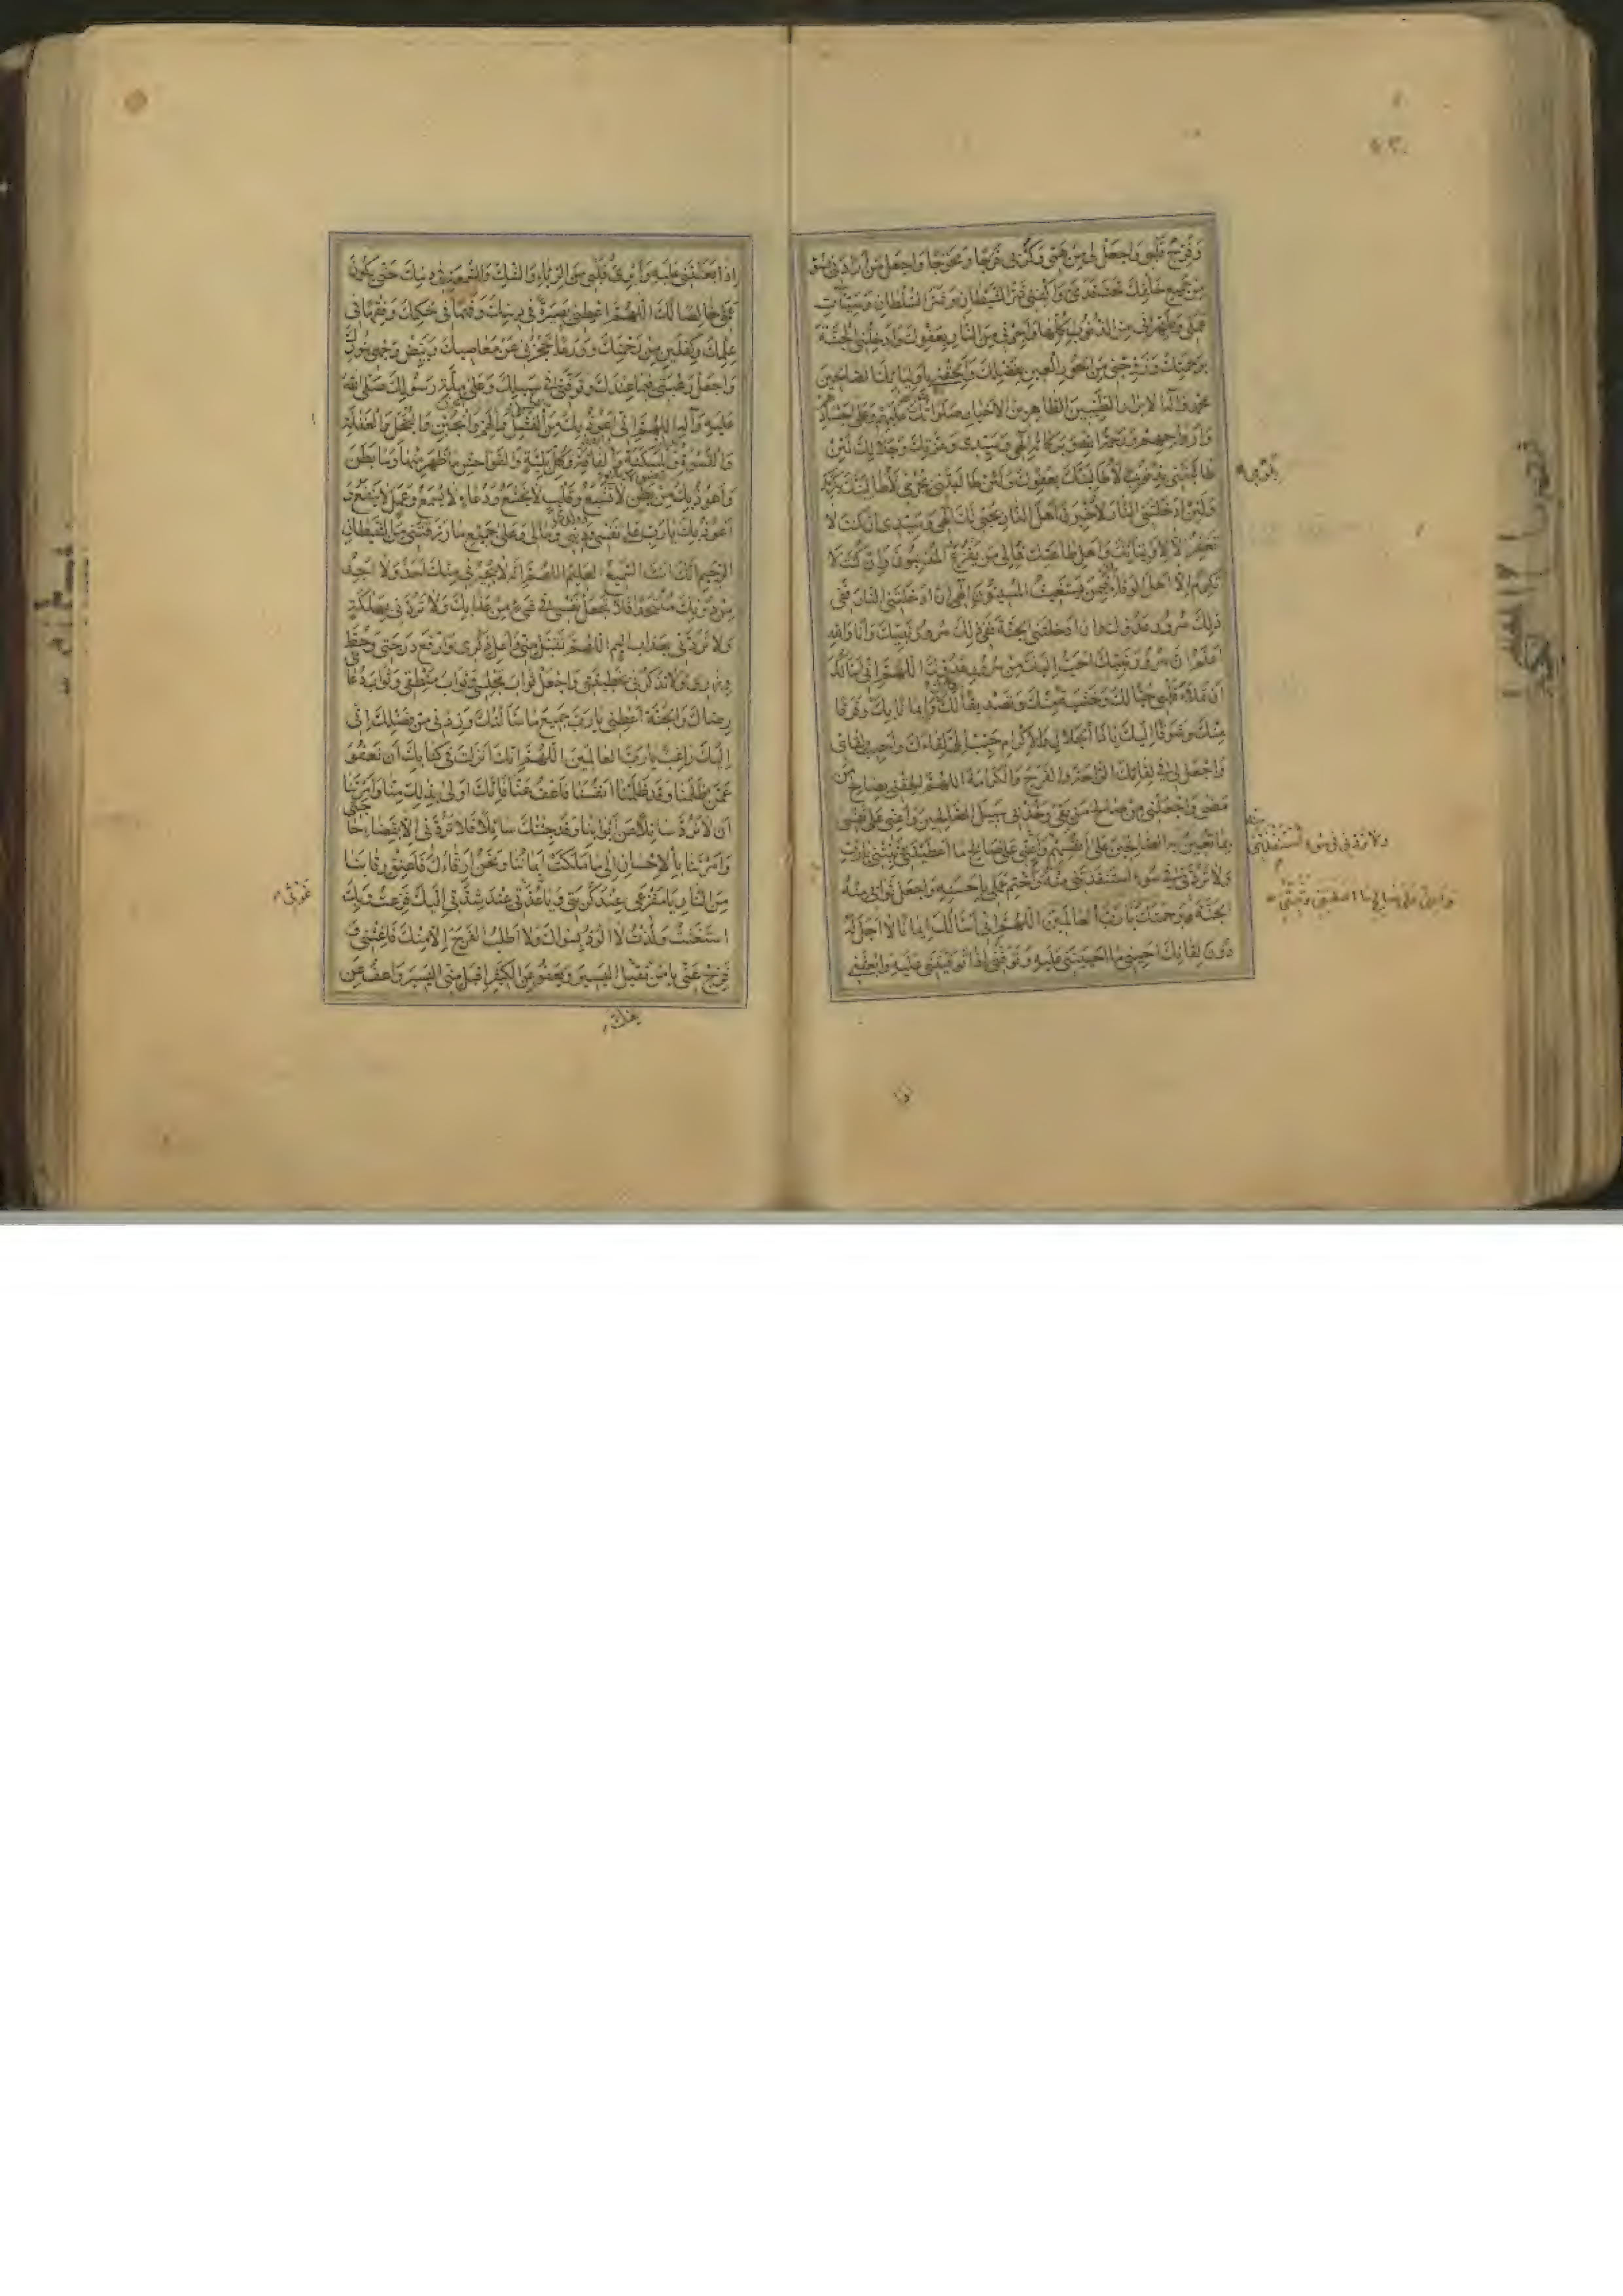 وَفَرِّحْ قَلْبِي وَاجْعَلْ لِي مِنْ هَمِّي وَكَرْبِي فَرَجًا وَمَخْرَجًا وَاجْعَلْ مَنْ أَرَادَنِي بِسُوءٍ
مِنْ جَمِيعِ خَلْقِكَ تَحْتَ قَدَمَيَّ وَاكْفِنِي شَرَّ الشَّيْطَانِ وَشَرَّ السُّلْطَانِ وَسَيِّئَاتِ
عَمَلِي وَطَهِّرْنِي مِنَ الذُّنُوبِ كُلِّهَا وَأَجِرْنِي مِنَ النَّارِ بِعَفْوِكَ وَأَدْخِلْنِي الْجَنَّةَ
بِرَحْمَتِكَ وَزَوِّجْنِي مِنَ الْحُورِ الْعِينِ بِفَضْلِكَ وَأَلْحِقْنِي بِأَوْلِيَائِكَ الصَّالِحِينَ
مُحَمَّدٍ وَآلِهِ الْأَبْرَارِ الطَّيِّبِينَ الطَّاهِرِينَ الْأَخْيَارِ صَلَوَاتُكَ عَلَيْهِمْ وَعَلَى أَجْسَادِهِمْ
وَأَرْوَاحِهِمْ وَرَحْمَةُ اللهِ وَبَرَكَاتُهُ إِلَهِي وَسَيِّدِي وَعِزَّتِكَ وَجَلَالِكَ لَئِنْ
طَالَبْتَنِي بِذُنُوبِي لَأُطَالِبَنَّكَ بِعَفْوِكَ وَلَئِنْ طَالَبْتَنِي بِلُؤْمِي لَأُطَالِبَنَّكَ بِكَرَمِكَ
وَلَئِنْ أَدْخَلْتَنِي النَّارَ لَأُخْبِرَنَّ أَهْلَ النَّارِ بِحُبِّي لَكَ إِلَهِي وَسَيِّدِي إِنْ كُنْتَ لَا
تَغْفِرُ إِلَّا لِأَوْلِيَائِكَ وَأَهْلِ طَاعَتِكَ فَإِلَى مَنْ يَفْزَعُ الْمُذْنِبُونَ وَإِنْ كُنْتَ لَا
تُكْرِمُ إِلَّا أَهْلَ الْوَفَاءِ فَبِمَنْ يَسْتَغِيثُ الْمُسِيئُونَ إِلَهِي إِنْ أَدْخَلْتَنِي النَّارَ فَفِي
ذَلِكَ سُرُورُ عَدُوِّكَ وَإِنْ أَدْخَلْتَنِي الْجَنَّةَ فَفِي ذَلِكَ سُرُورُ نَبِيِّكَ وَأَنَا وَاللهِ
أَعْلَمُ أَنَّ سُرُورَ نَبِيِّكَ أَحَبُّ إِلَيْكَ مِنْ سُرُورِ عَدُوِّكَ اللَّهُمَّ إِنِّي أَسْأَلُكَ
أَنْ تَمْلَأَ قَلْبِي حُبًّا لَكَ وَخَشْيَةً مِنْكَ وَتَصْدِيقًا لَكَ وَإِيمَانًا بِكَ وَفَرَقًا
مِنْكَ وَشَوْقًا إِلَيْكَ يَا ذَا الْجَلَالِ وَالْإِكْرَامِ حَبِّبْ إِلَيَّ لِقَاءَكَ وَأَحْبِبْ لِقَائِي
وَاجْعَلْ لِي فِي لِقَائِكَ الرَّاحَةَ وَالْفَرَجَ وَالْكَرَامَةَ اللَّهُمَّ أَلْحِقْنِي بِصَالِحِ مَنْ
مَضَى وَاجْعَلْنِي مِنْ صَالِحِ مَنْ بَقِيَ وَخُذْ بِي سَبِيلَ الصَّالِحِينَ وَأَعِنِّي عَلَى نَفْسِي
بِمَا تُعِينُ بِهِ الصَّالِحِينَ عَلَى أَنْفُسِهِمْ وَأَعِنِّي عَلَى صَالِحِ مَا أَعْطَيْتَنِي وَثَبِّتْنِي يَا رَبِّ
وَلَا تَرُدَّنِي فِي سُوءٍ اسْتَنْقَذْتَنِي مِنْهُ وَاخْتِمْ عَمَلِي بِأَحْسَنِهِ وَاجْعَلْ ثَوَابِي مِنْهُ
الْجَنَّةَ بِرَحْمَتِكَ يَا رَبَّ الْعَالَمِينَ اللَّهُمَّ إِنِّي أَسْأَلُكَ إِيمَانًا لَا أَجَلَ لَهُ
دُونَ لِقَائِكَ أَحْيِنِي مَا أَحْيَيْتَنِي عَلَيْهِ وَتَوَفَّنِي إِذَا تَوَفَّيْتَنِي عَلَيْهِ وَابْعَثْنِي
وَلَا تَرُدَّنِي فِي سُوءٍ اسْتَنْقَذْتَنِي
إِذَا بَعَثْتَنِي عَلَيْهِ وَأَبْرِئْ قَلْبِي مِنَ الرِّيَاءِ وَالشَّكِّ وَالسُّمْعَةِ فِي دِينِكَ حَتَّى يَكُونَ
عَمَلِي خَالِصًا لَكَ اللَّهُمَّ أَعْطِنِي بَصِيرَةً فِي دِينِكَ وَفَهْمًا فِي حُكْمِكَ وَفِقْهًا فِي
عِلْمِكَ وَكِفْلَيْنِ مِنْ رَحْمَتِكَ وَوَرَعًا يَحْجُزُنِي عَنْ مَعَاصِيكَ وَبَيِّضْ وَجْهِي بِنُورِكَ
وَاجْعَلْ رَغْبَتِي فِيمَا عِنْدَكَ وَتَوَفَّنِي فِي سَبِيلِكَ وَعَلَى مِلَّةِ رَسُولِكَ صَلَّى اللهُ
عَلَيْهِ وَآلِهِ اللَّهُمَّ إِنِّي أَعُوذُ بِكَ مِنَ الْفَشَلِ وَالْهَمِّ وَالْجُبْنِ وَالْبُخْلِ وَالْغَفْلَةِ
وَالْقَسْوَةِ وَالْمَسْكَنَةِ وَالْفَاقَةِ وَكُلِّ بَلِيَّةٍ وَالْفَوَاحِشِ مَا ظَهَرَ مِنْهَا وَمَا بَطَنَ
وَأَعُوذُ بِكَ مِنْ بَطْنٍ لَا يَشْبَعُ وَقَلْبٍ لَا يَخْشَعُ وَدُعَاءٍ لَا يُسْمَعُ وَعَمَلٍ لَا يَنْفَعُ وَ
أَعُوذُ بِكَ يَا رَبِّ عَلَى نَفْسِي وَدِينِي وَمَالِي وَعَلَى جَمِيعِ مَا رَزَقْتَنِي مِنَ الشَّيْطَانِ
الرَّجِيمِ إِنَّكَ أَنْتَ السَّمِيعُ الْعَلِيمُ اللَّهُمَّ إِنَّهُ لَا يُجِيرُنِي مِنْكَ أَحَدٌ وَلَا أَجِدُ
مِنْ دُونِكَ مُلْتَحَدًا فَلَا تَجْعَلْ نَفْسِي فِي شَيْءٍ مِنْ عَذَابِكَ وَلَا تَرُدَّنِي بِهَلَكَةٍ
وَلَا تَرُدَّنِي بِعَذَابٍ أَلِيمٍ اللَّهُمَّ تَقَبَّلْ مِنِّي وَأَعْلِ ذِكْرِي وَارْفَعْ دَرَجَتِي وَحُطَّ
وِزْرِي وَلَا تَذْكُرْنِي بِخَطِيئَتِي وَاجْعَلْ ثَوَابَ مَجْلِسِي وَثَوَابَ مَنْطِقِي وَثَوَابَ دُعَائِي
رِضَاكَ وَالْجَنَّةَ أَعْطِنِي يَا رَبِّ جَمِيعَ مَا سَأَلْتُكَ وَزِدْنِي مِنْ فَضْلِكَ إِنِّي
إِلَيْكَ رَاغِبٌ يَا رَبَّ الْعَالَمِينَ اللَّهُمَّ إِنَّكَ أَنْزَلْتَ فِي كِتَابِكَ أَنْ نَعْفُوَ
عَمَّنْ ظَلَمَنَا وَقَدْ ظَلَمْنَا أَنْفُسَنَا فَاعْفُ عَنَّا فَإِنَّكَ أَوْلَى بِذَلِكَ مِنَّا وَأَمَرْتَنَا
أَنْ لَا نَرُدَّ سَائِلًا عَنْ أَبْوَابِنَا وَقَدْ جِئْتُكَ سَائِلًا فَلَا تَرُدَّنِي إِلَّا بِقَضَاءِ حَاجَتِي
وَأَمَرْتَنَا بِالْإِحْسَانِ إِلَى مَا مَلَكَتْ أَيْمَانُنَا وَنَحْنُ أَرِقَّاؤُكَ فَأَعْتِقْ رِقَابَنَا
مِنَ النَّارِ يَا مَفْزَعِي عِنْدَ كُرْبَتِي وَيَا غَوْثِي عِنْدَ شِدَّتِي إِلَيْكَ فَزِعْتُ وَبِكَ
اسْتَغَثْتُ وَلُذْتُ لَا أَلُوذُ بِسِوَاكَ وَلَا أَطْلُبُ الْفَرَجَ إِلَّا مِنْكَ فَأَغِثْنِي وَ
فَرِّجْ عَنِّي يَا مَنْ يَقْبَلُ الْيَسِيرَ وَيَعْفُو عَنِ الْكَثِيرِ اقْبَلْ مِنِّي الْيَسِيرَ وَاعْفُ عَنِّي
غَوْثِي